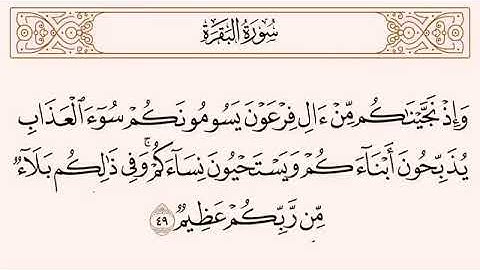 سُورَةُ البَقَرَةِ
وَإِذْ نَجَّيْنَٰكُم مِّنْ ءَالِ فِرْعَوْنَ يَسُومُونَكُمْ سُوٓءَ ٱلْعَذَابِ
يُذَبِّحُونَ أَبْنَآءَكُمْ وَيَسْتَحْيُونَ نِسَآءَكُمْ ۚ وَفِى ذَٰلِكُم بَلَآءٌ
مِّن رَّبِّكُمْ عَظِيمٌ ٤٩